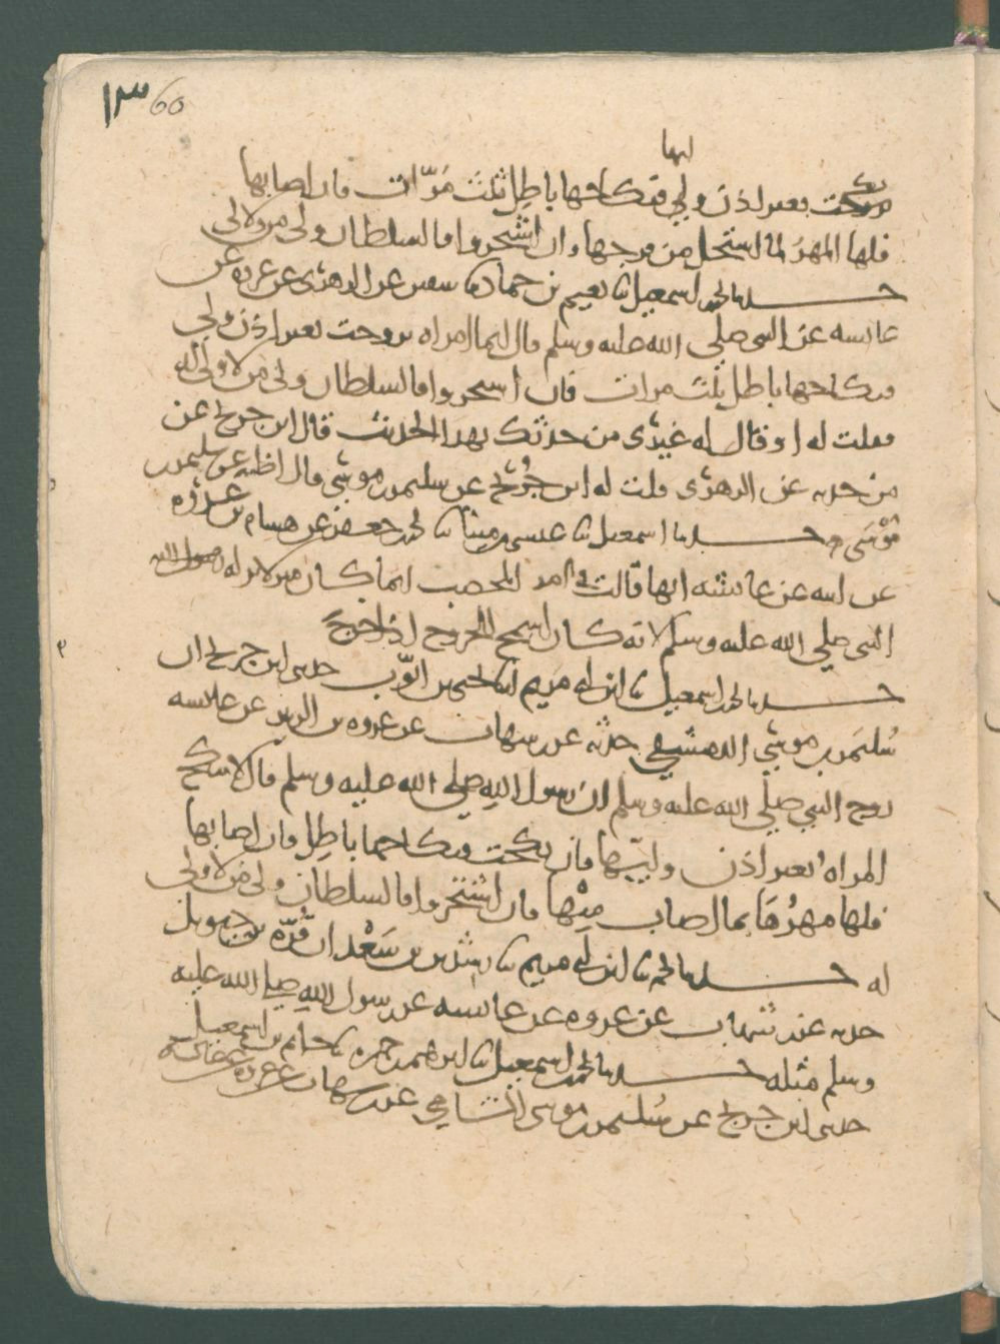 ١٣ 60
ايما
نكحت بغير اذن ولي فنكاحها باطل ثلث مرّات فان اصابها
فلها المهر لما استحل من فرجها وان اشتجروا فالسلطان ولي من لا لي
حدثنا محمد بن اسمعيل ثنا نعيم بن حماد ثنا سفين عن الزهري عن عروه عن
عائشه عن النبي صلي الله عليه وسلم قال ايما امراه تزوجت بغير اذن ولي
فنكاحها باطل ثلث مرات فان اشتجروا فالسلطان ولي من لا ولي له
فقلت له او قال له غيري من حدثك بهذا الحديث قال ابن جريج عن
من حدثه عن الزهري قلت له ابن جُريج عن سليمن بن موسي قال اظنه عن سليمن بن
مُوسَي حدثنا اسمعيل ثنا عيسي بن مينا ثنا محمد بن جعفر عن هشام بن عروه
عن ابيه عن عائشه انها قالت في امر المحصب انما كان منزلا نزله رسول الله
النبي صلي الله عليه وسلم لانه كان اسمح للخروج اذا خرج
حدثنا محمد بن اسمعيل ثنا ابن ابي مريم انا يحيي بن ايّوب حدثني ابن جريج ان
سُليمن بن موسي الدمشقي حدثه عن بن شهاب عن عروه بن الزبير عن عائشه
زوج النبي صلي الله عليه وسلم ان رسول الله صلي الله عليه وسلم قال لا تنكح
المراه بغير اذن وليّها فان نكحت فنكاحها باطل فان اصابها
فلها مهرُهَا بما اصاب مِنْها فان اشتجروا فالسلطان ولي من لا ولي
له حدثنا محمد ثنا ابن ابي مريم ثنا رشدين بن سَعْد ان قُرّه بن حيويل
حدثه عن بن شهاب عن عروه عن عائشه عن رسول الله صلي الله عليه
وسلم مثله حدثنا محمد بن اسمعيل ثنا ابرهيم بن حمزه ثنا حاتم بن اسمعيل
حدثني ابن جريج عن سُليمن بن موسي الشامي عن بن شهاب عن عروه عن عائشه